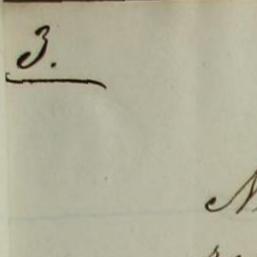 3.
N